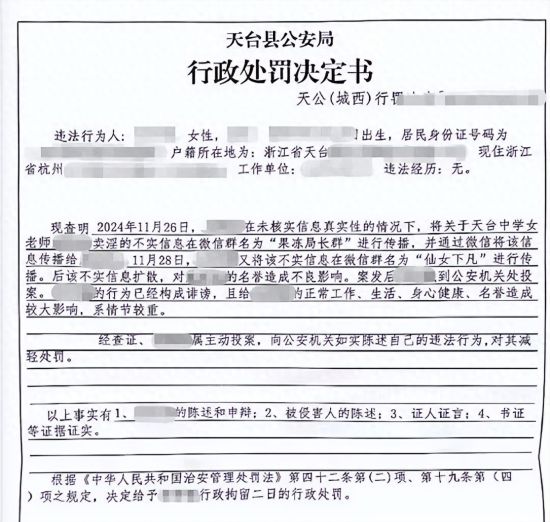 天台县公安局
行政处罚决定书
天公(城西)行罚
违法行为人: 女性, 出生, 居民身份证号码为
户籍所在地为: 浙江省天台 现住浙江
省杭州 工作单位: 违法经历: 无。
现查明 2024年11月26日, 在未核实信息真实性的情况下, 将关于天台中学女
老师 卖淫的不实信息在微信群名为“果冻局长群”进行传播, 并通过微信将该信
息传播给 11月28日, 又将该不实信息在微信群名为“仙女下凡”进行传
播。后该不实信息扩散, 对 的名誉造成不良影响。案发后 到公安机关处投
案。 的行为已经构成诽谤, 且给 的正常工作、生活、身心健康、名誉造成
较大影响, 系情节较重。
经查证、 属主动投案, 向公安机关如实陈述自己的违法行为, 对其减
轻处罚。
以上事实有1、 的陈述和申辩; 2、被侵害人的陈述; 3、证人证言; 4、书证
等证据证实。
根据《中华人民共和国治安管理处罚法》第四十二条第(二)项、第十九条第(四
)项之规定, 决定给予 行政拘留二日的行政处罚。